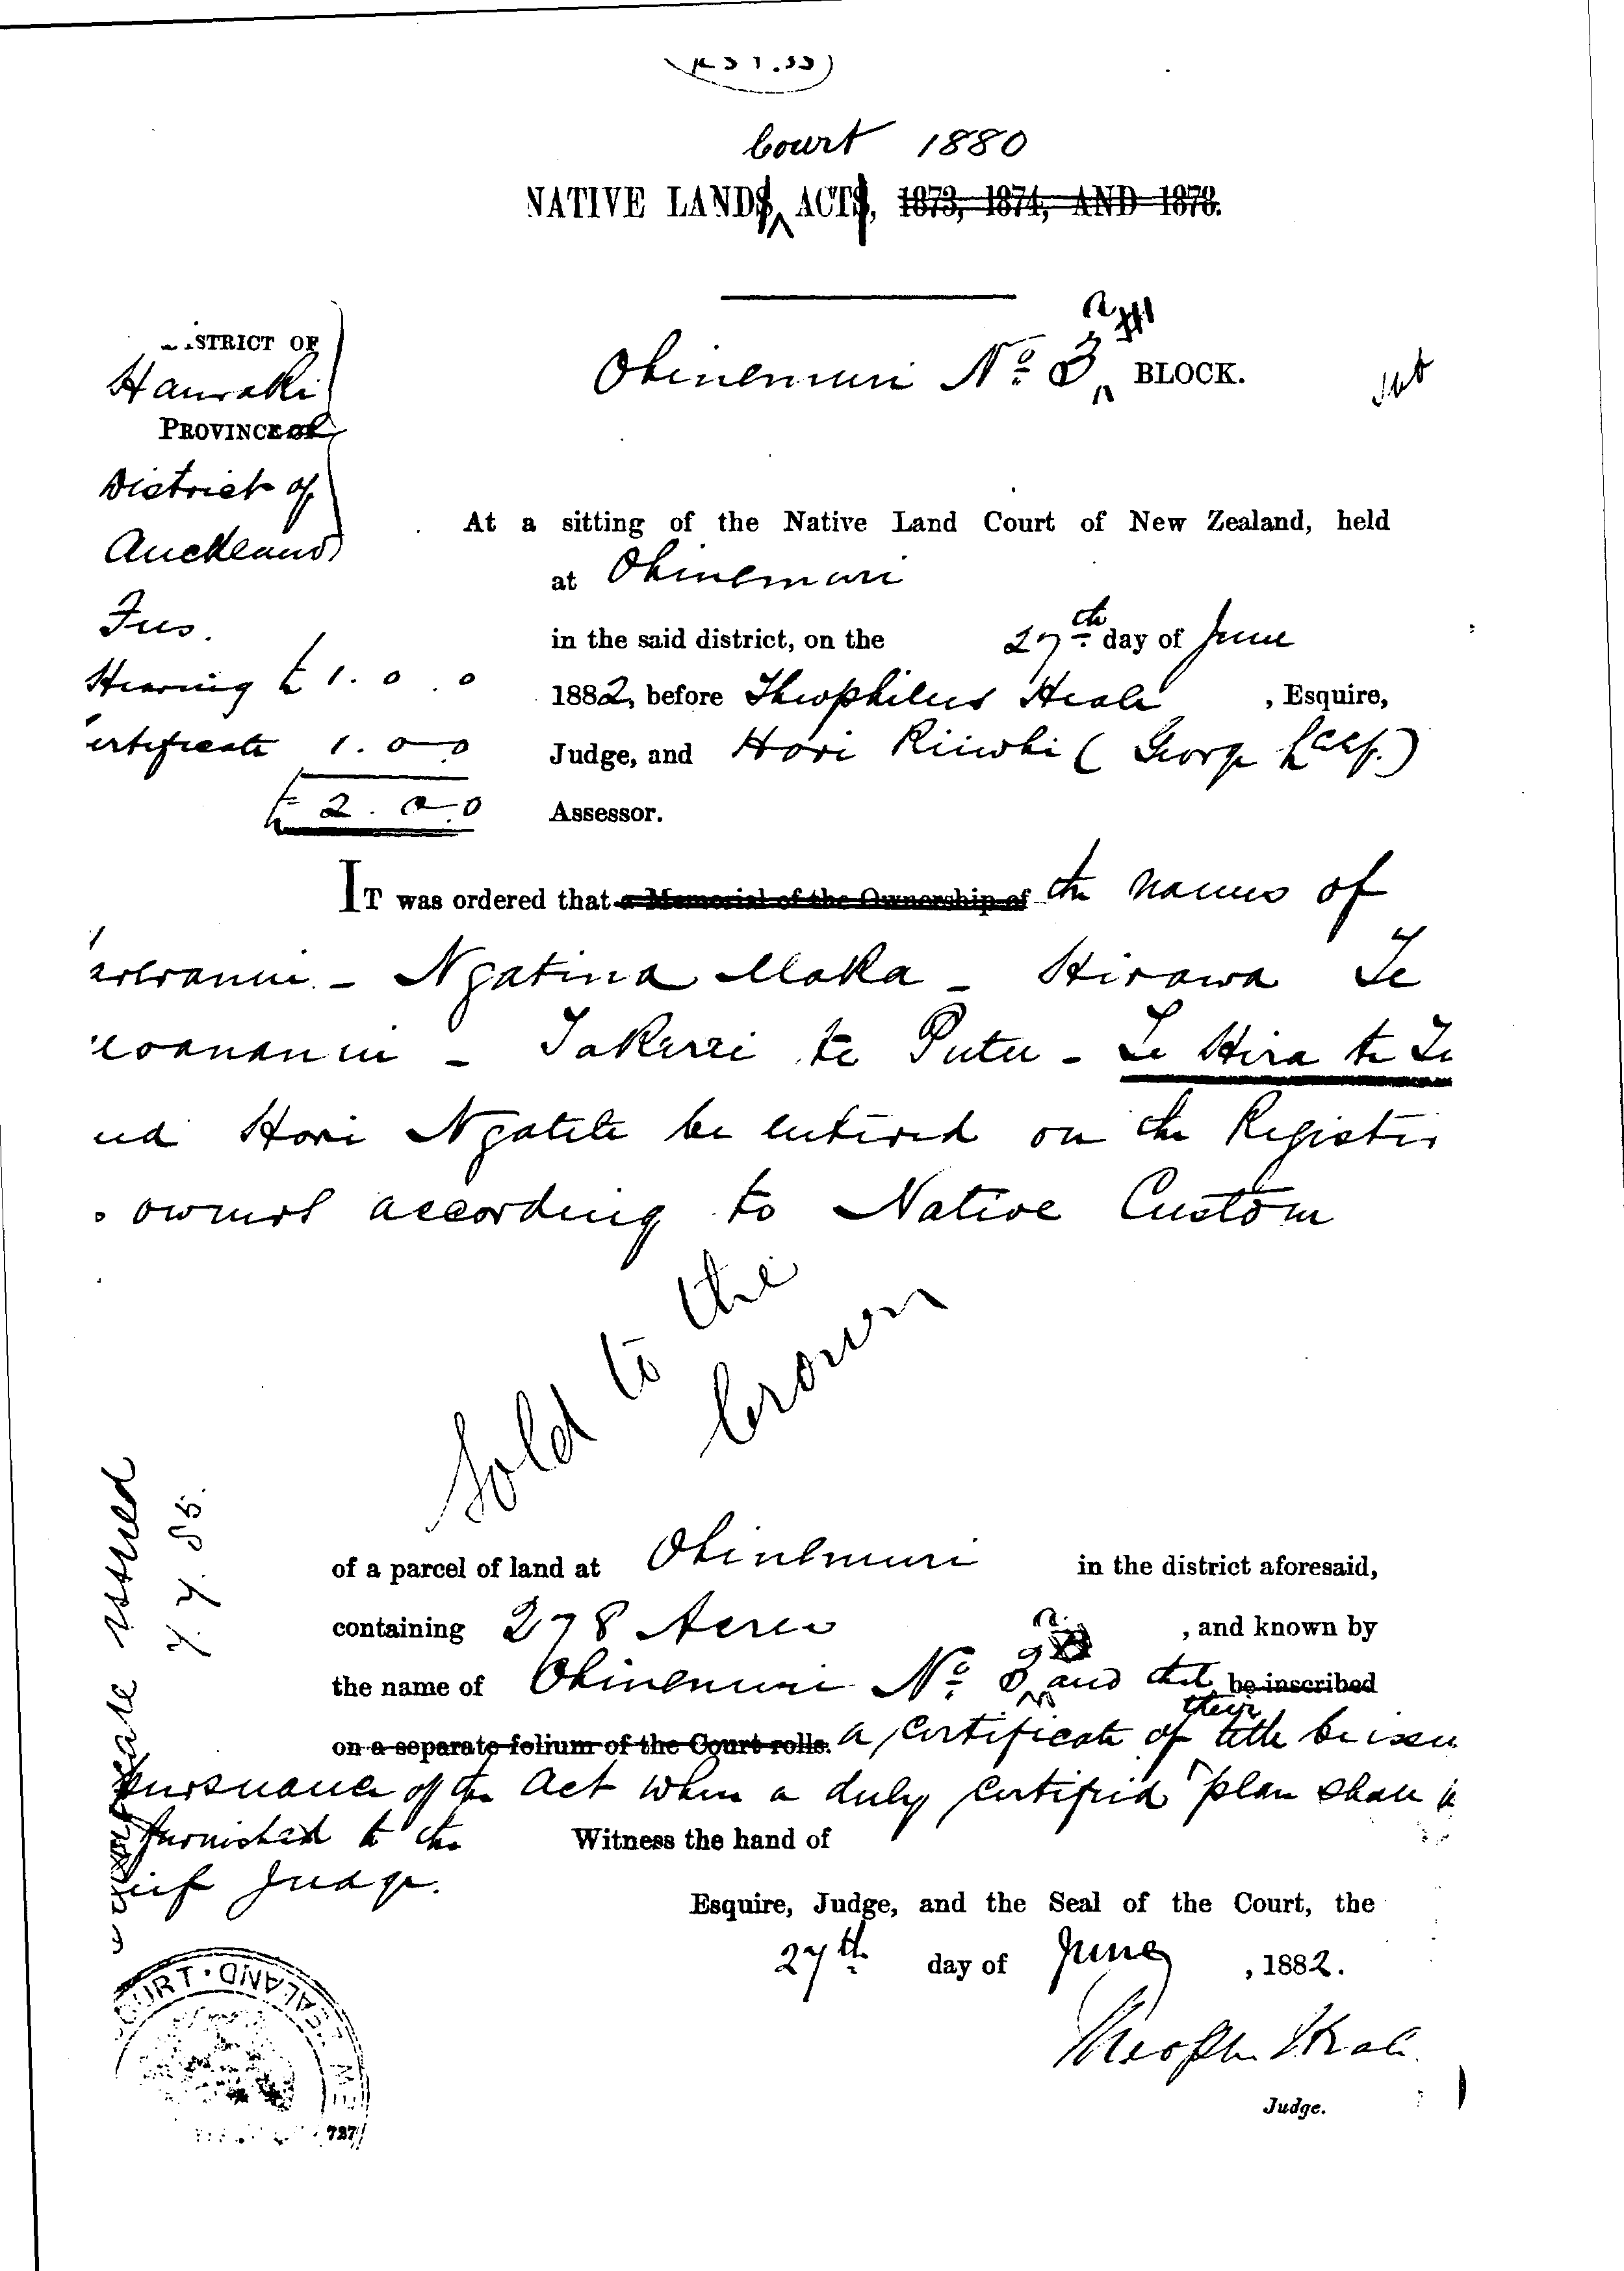 Court 1880
NATIVE LANDS ACTS, 1873, 1874, AND 1878.
DISTRICT OF
Hauraki
PROVINCE OF
District of
Auckland
Ohinemuri No. 3 BLOCK.
At a sitting of the Native Land Court of New Zealand, held
at Ohinemuri
in the said district, on the 27th day of June
1882, before Theophilus Heale, Esquire,
Judge, and Hori Riiwhi (George
Assessor.
Fees.
Hearing £ 1. 0. 0
ertificate 1. 0. 0
£ 2. 0. 0
IT was ordered that a Memorial of the Ownership of the names of
Ngatina Maka - Hirawa Te
Takerei te Putu - Te Hira te Te
Hori Ngatete be entered on the Register
owners according to Native Custom
Sold to the
Crown
issued
7.7.85.
of a parcel of land at Ohinemuri in the district aforesaid,
containing 278 Acres, and known by
the name of Ohinemuri No. 3 and that be inscribed
on a separate folium of the Court rolls. a certificate of their title be issu
pursuance of the Act when a duly certified plan shall
furnished to the
ief Judge.
Witness the hand of
Esquire, Judge, and the Seal of the Court, the
27th day of June, 1882.
Theoph. Heale
Judge.
COURT · ZEALAND
727